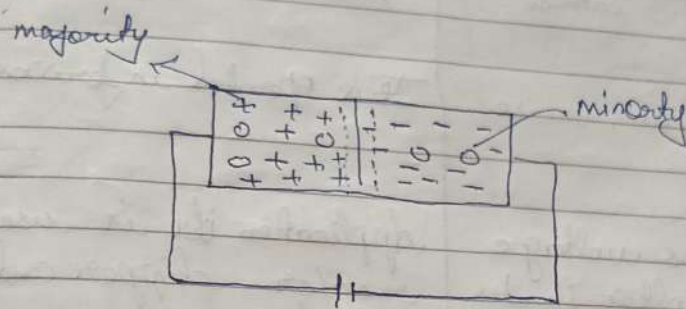 majority
minority